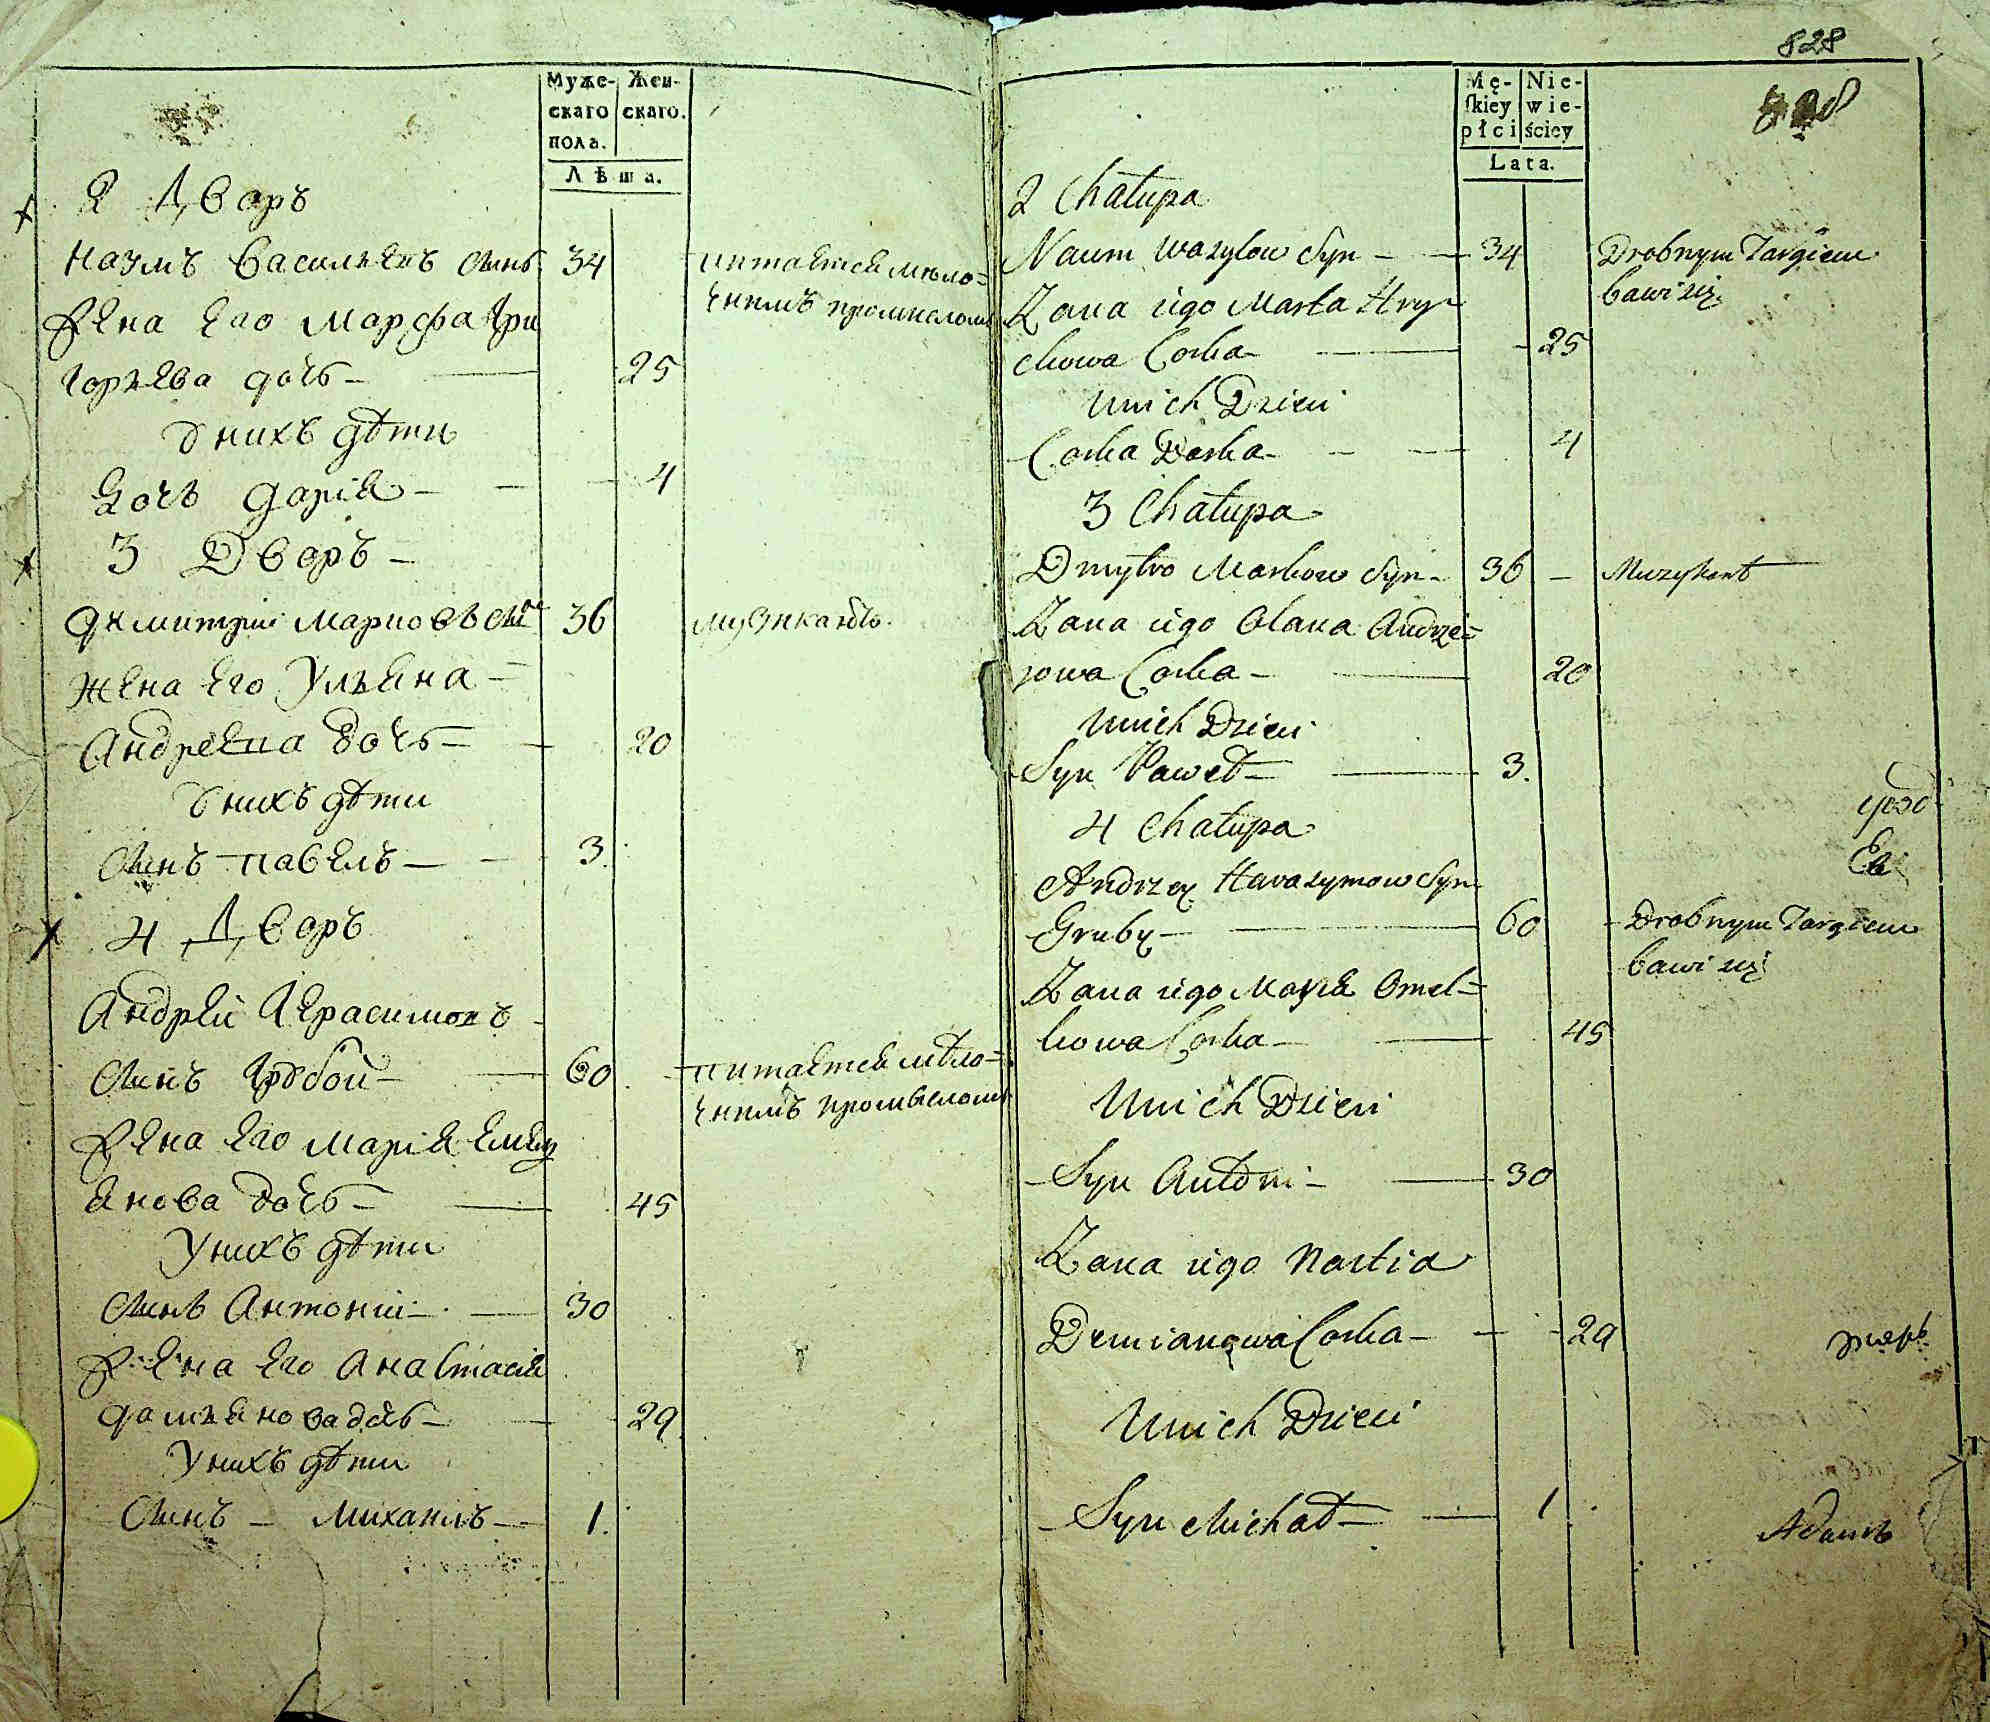 Муже-
скаго
пола.
Жен-
скаго.
Лѣта.
2 Дворъ
Наумъ Васильевъ сынъ 34 питается мѣло=
чнымъ промысломъ
Жена его Марфа Гри
горьева дочь - 25
У нихъ дѣти
Дочь Дарія - - 4
3 Дворъ -
Димитрий Марковъ сынъ 36 музыкантъ.
Жена его Ульяна -
Андреева дочь - 20
У нихъ дѣти
Сынъ павелъ - 3.
4 Дворъ
Андрей Герасимовъ
сынъ Грубой - 60 питается мѣло=
чнымъ промысломъ
Жена его Марія Емель
янова дочь - 45
У нихъ дѣти
Сынъ Антоній - 30
Жена его Анастасія
Дамьянова дочь - 29
У нихъ дѣти
Сынъ - Михаилъ - 1.
828
Mę-
skiey
płci
Nie-
wie-
ściey
Lata.
828
2 Chałupa
Naum Wasylow Syn - 34 Drobnym Targiem
bawi się
Żona iego Marta Hry
chowa Corka - 25
U nich Dzieci
Corka Darka - 4
3 Chałupa
Dmytro Markow Syn - 36 - Muzykant
Żona iego Olana Andrze=
jowa Corka - 20
U nich Dzieci
Syn Paweł - 3.
4 Chałupa
Andrzey Harasymow Syn
Gruby - 60 - Drobnym Targiem
bawi się
Żona iego Marya Omel=
kowa Corka - 45
U nich Dzieci
Syn Antoni - 30
Żona iego Nastia
Demianowa Corka - 29
U nich Dzieci
Syn Michał - 1
Адамъ